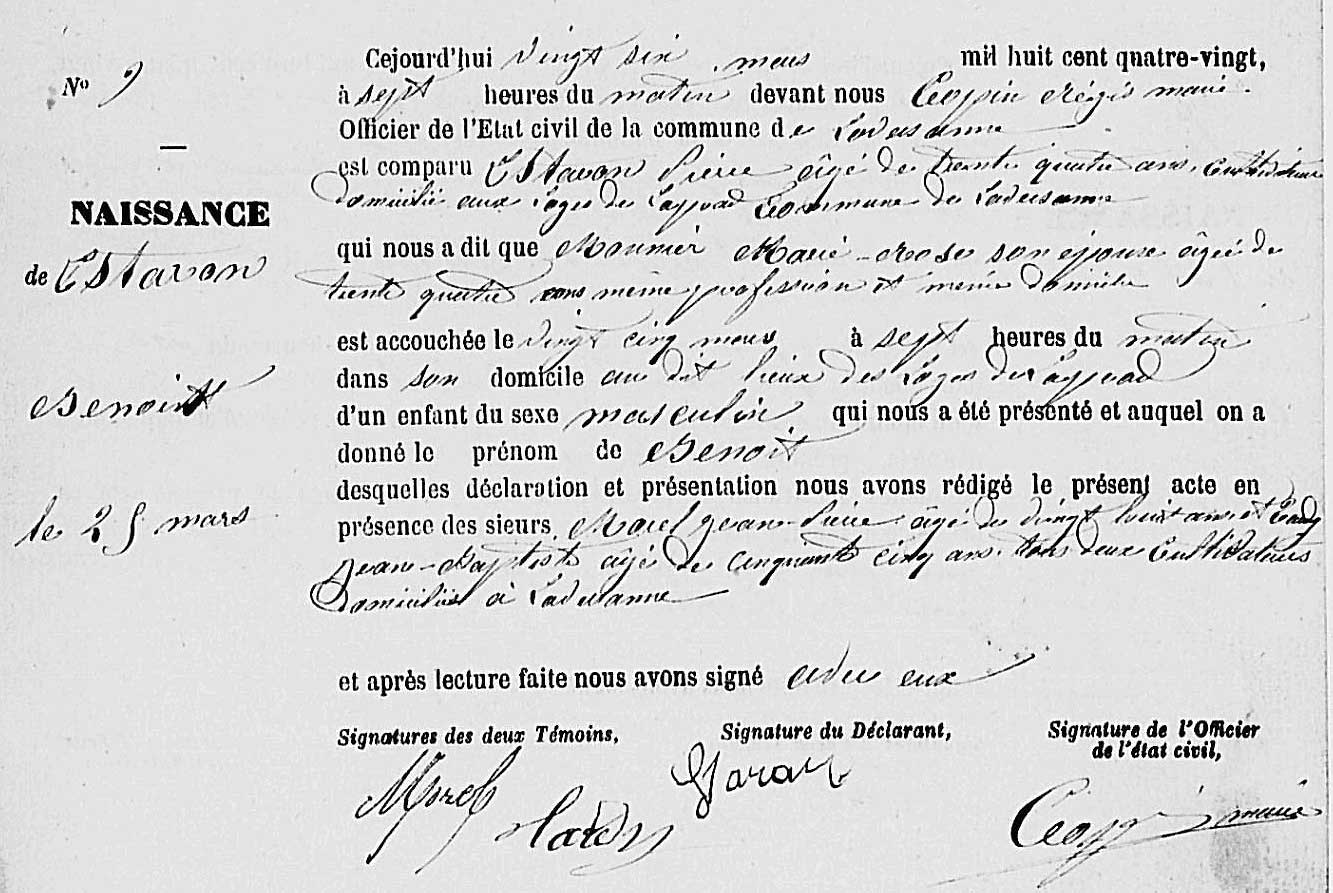 N° 9
—
NAISSANCE
de Estavon
Benoit
le 25 mars
Cejourd'hui vingt six mars mil huit cent quatre-vingt,
à sept heures du matin devant nous Régis maire.
Officier de l'Etat civil de la commune de
est comparu Estavon Pierre âgé de trente quatre ans, Cultivateur
domicilié aux Loges de Commune de
qui nous a dit que Mounier Marie-Rose son épouse âgée de
trente quatre ans même profession et même domicile
est accouchée le vingt cinq mars à sept heures du matin
dans son domicile au dit lieux des Loges de
d'un enfant du sexe masculin qui nous a été présenté et auquel on a
donné le prénom de Benoit
desquelles déclaration et présentation nous avons rédigé le présent acte en
présence des sieurs, Morel Jean-Pierre âgé de vingt huit ans et
Jean-Baptiste âgé de cinquante cinq ans tous deux Cultivateurs
domiciliés à
et après lecture faite nous avons signé avec eux
Signatures des deux Témoins, Signature du Déclarant, Signature de l'Officier
de l'état civil,
Morel
maire